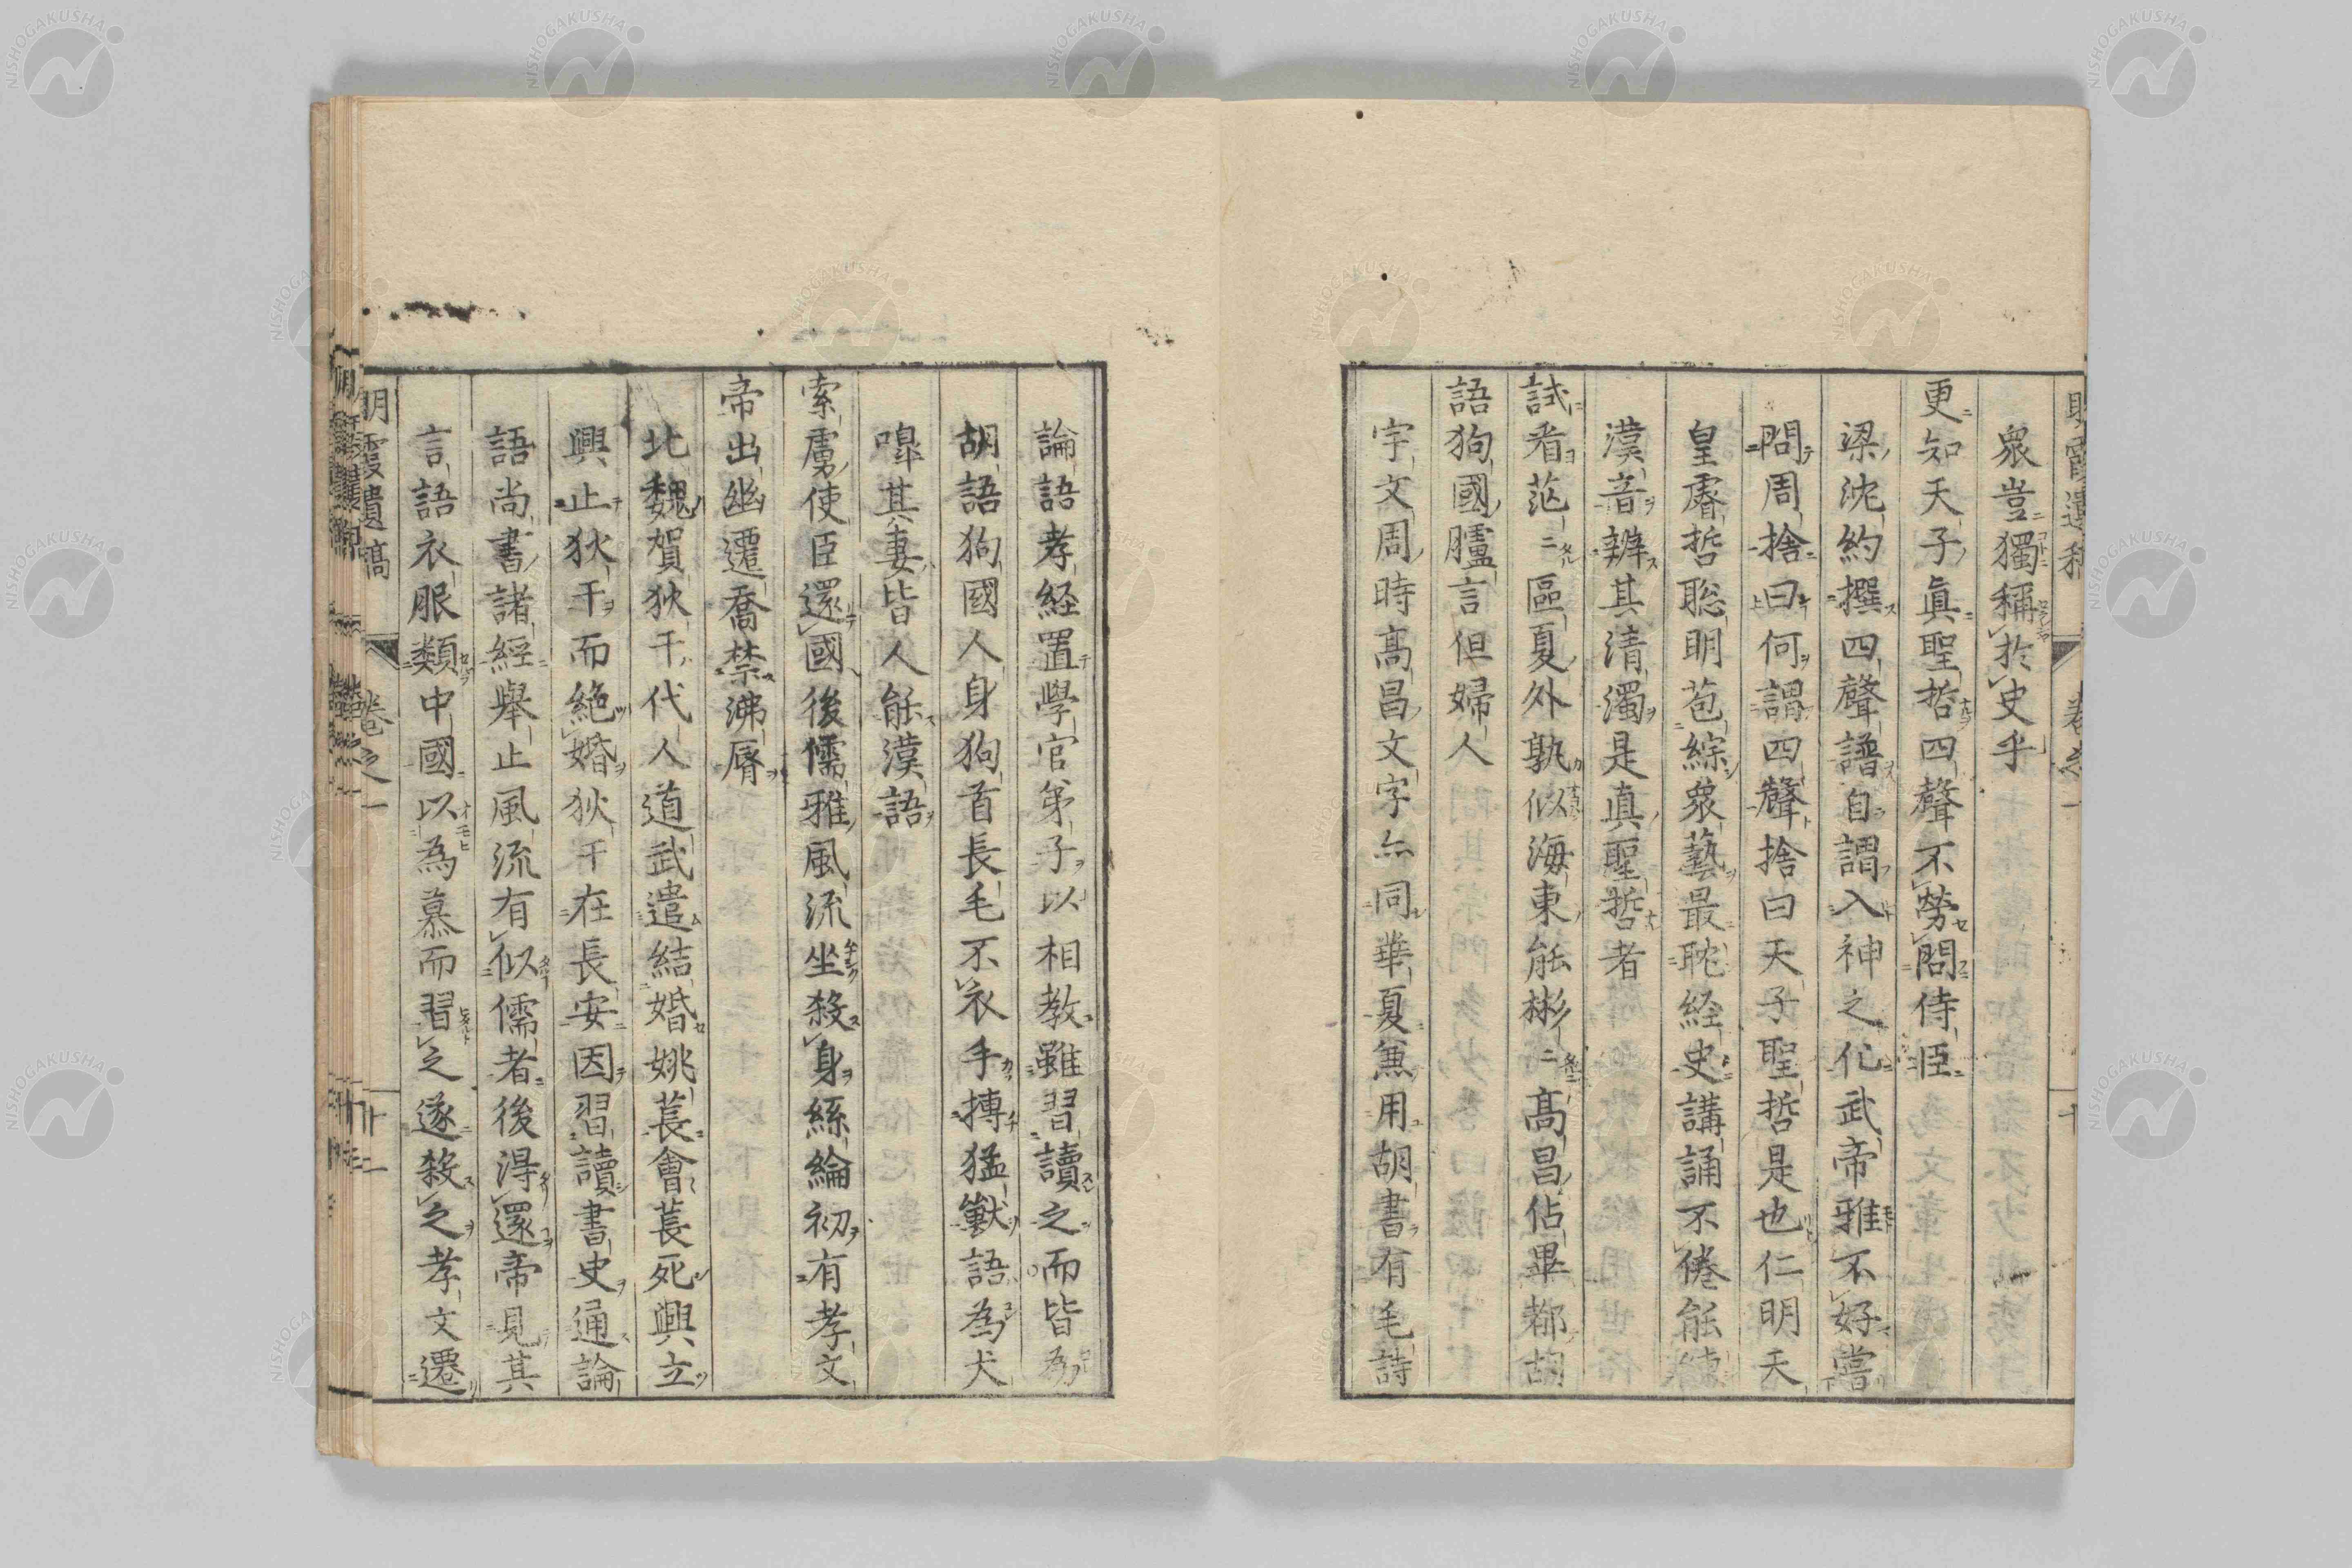 衆豈獨稱於史乎
更知天子眞聖哲四聲不勞問侍臣
梁沈約撰四聲譜自謂入神之作武帝雅不好嘗
問周捨曰何謂四聲捨曰天子聖哲是也仁明天
皇睿哲聡明苞綜衆藝最耽経史講誦不倦能練
漢音辨其清濁是真聖哲者
試看茫〻區夏外孰似海東能彬〻髙昌佔畢都胡
語狗國臚言但婦人
宇文周時髙昌文字亦同華夏兼用胡書有毛詩
論語孝経置學官弟子以相教雖習讀之而皆為
胡語狗國人身狗首長毛不衣手搏猛獸語為犬
嘷其妻皆人能漢語
索虜使臣還國後儒雅風流坐殺身絲綸初有孝文
帝出幽遷喬禁沸脣
北魏賀狄干代人道武遣結婚姚萇會萇死興立
興止狄干而絶婚狄干在長安因習讀書史通論
語尚書諸經舉止風流有似儒者後得還帝見其
言語衣服類中國以為慕而習之遂殺之孝文遷
明霞遺稿
卷之一
NISHOGAKUSHA